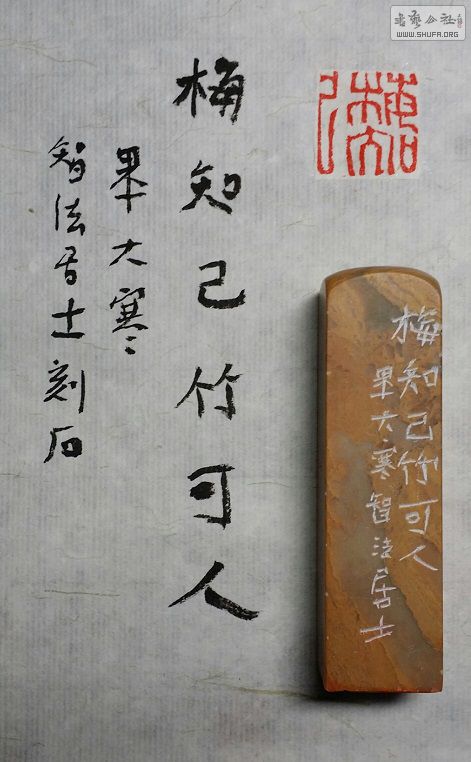 書藝公社
WWW.SHUFA.ORG
梅知己竹可人
大寒
智法居士刻石
梅知己竹可人
大寒智法居士